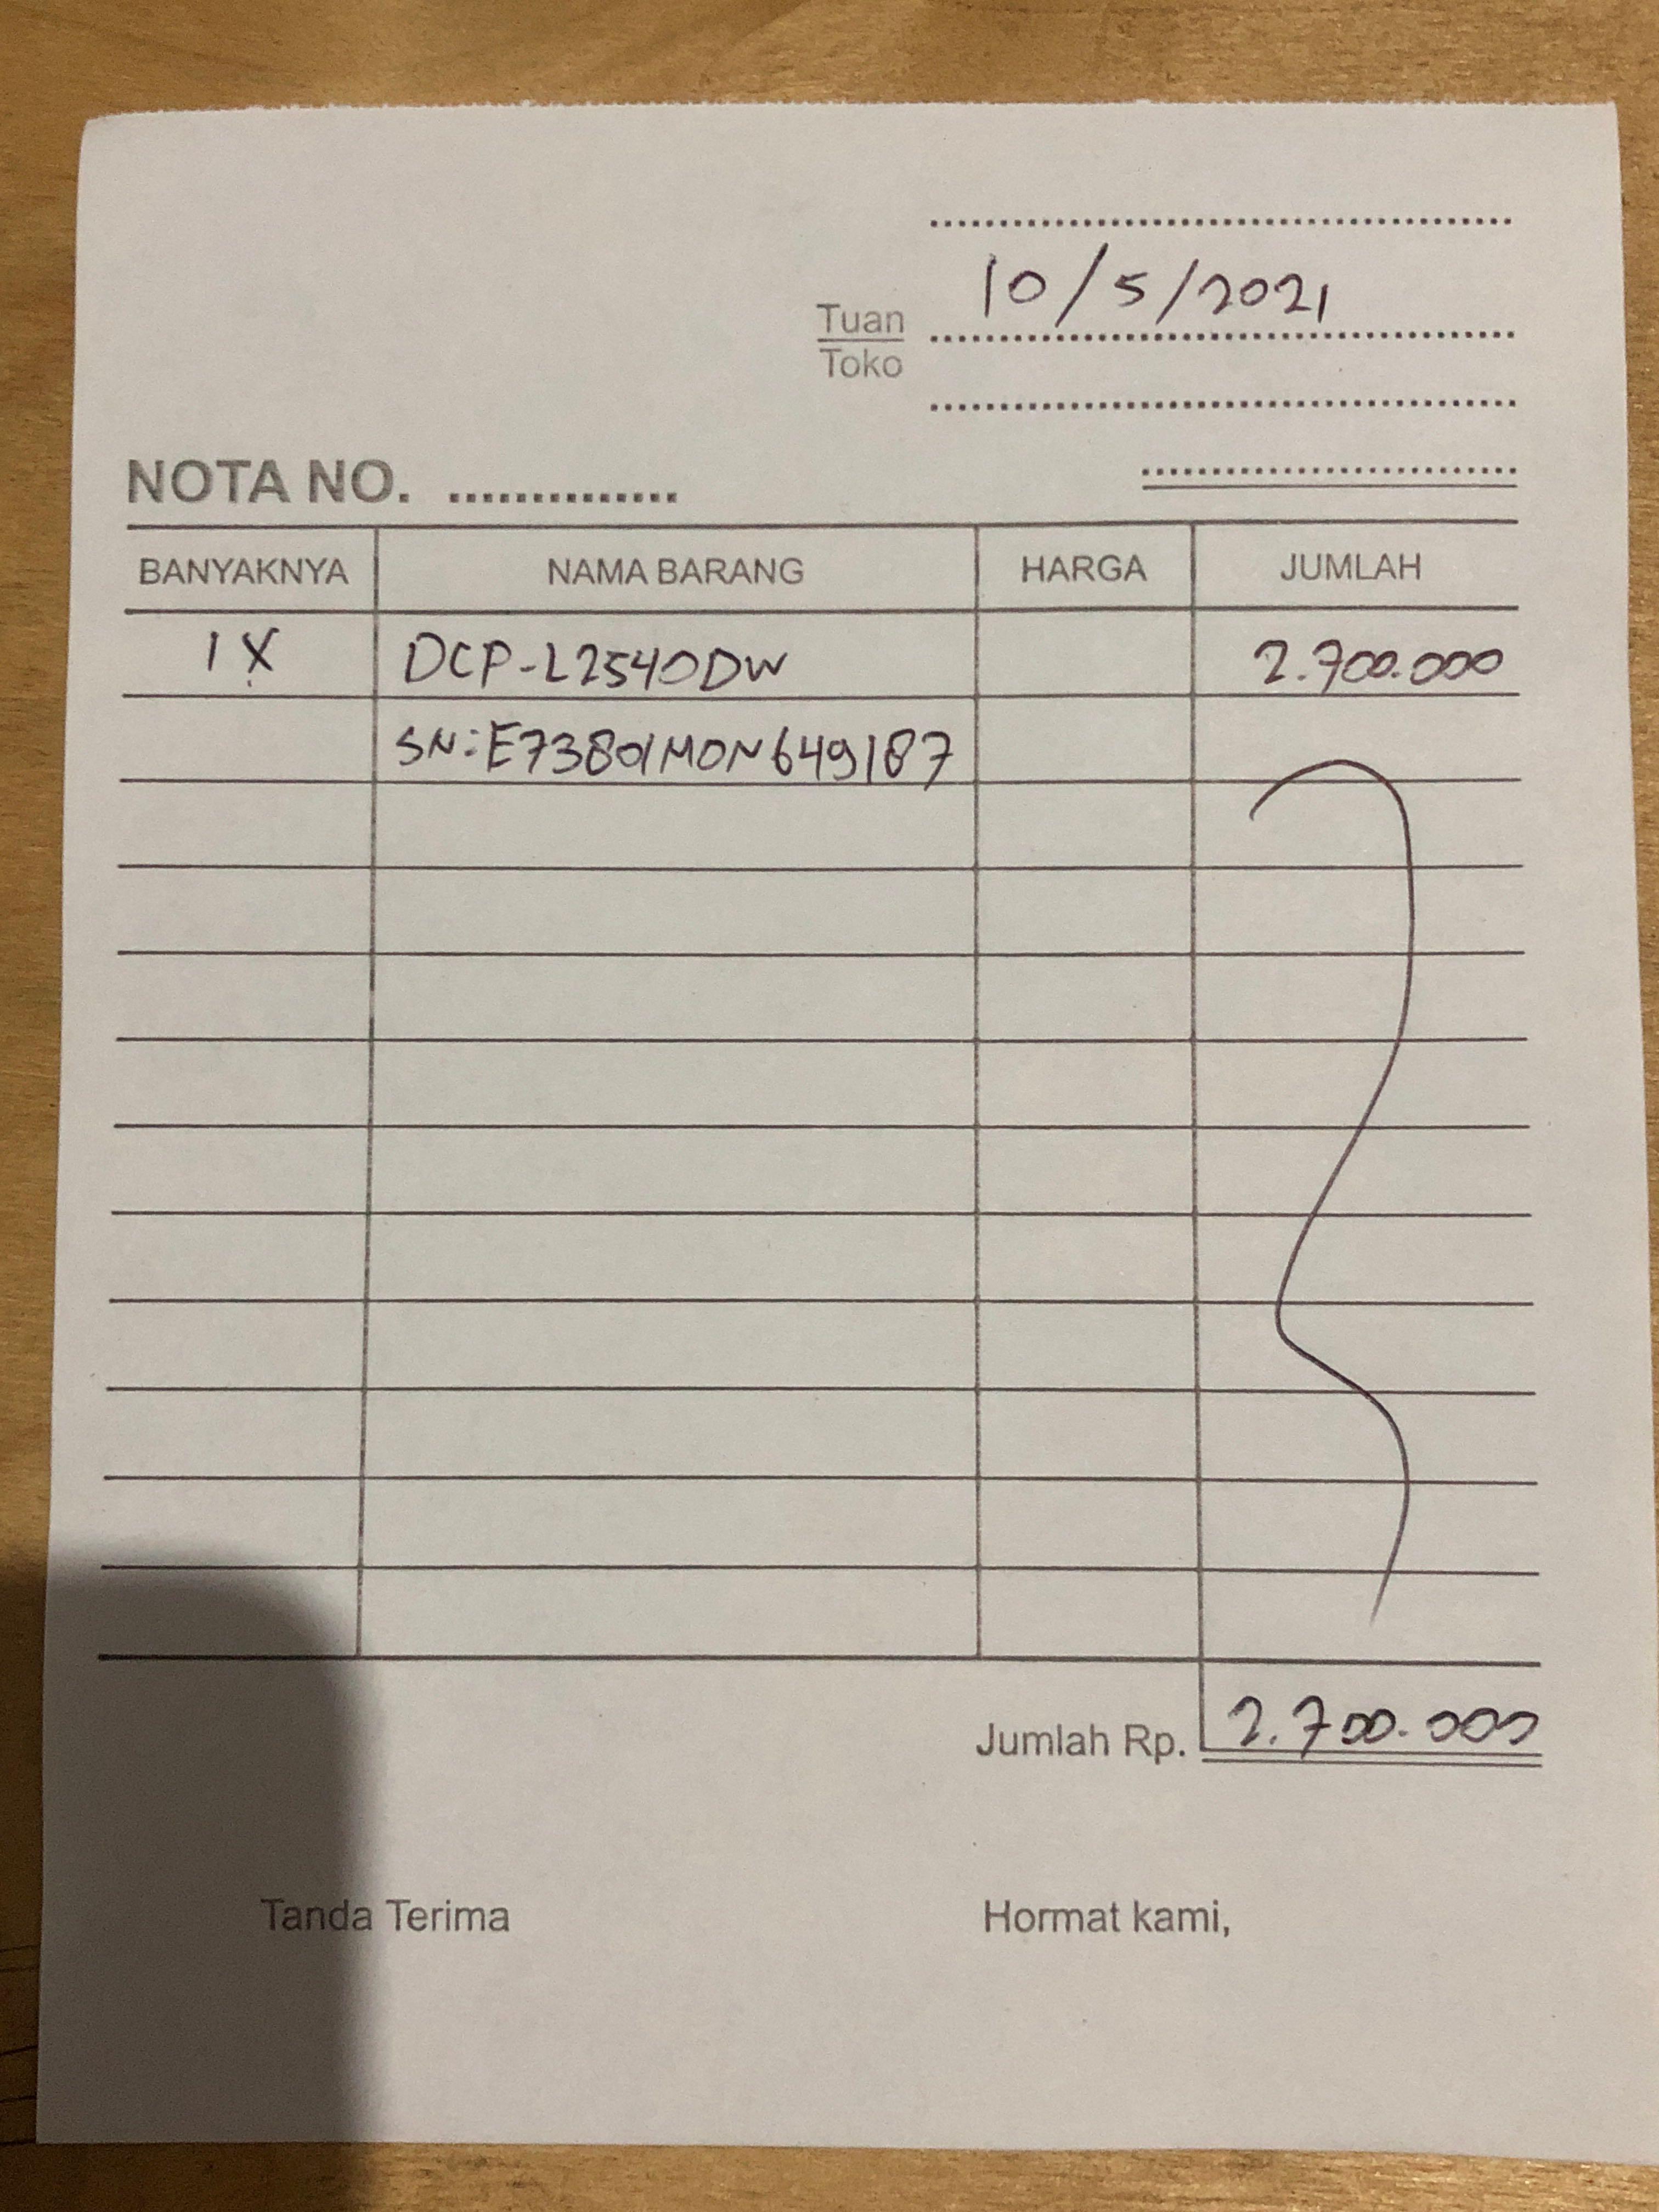 10/5/2021
Tuan
Toko
NOTA NO. ..............
BANYAKNYA NAMA BARANG HARGA JUMLAH
1X DCP-L2540DW 2.700.000
SN:E73801M0N649187
Jumlah Rp. 2.700.000
Tanda Terima Hormat kami,